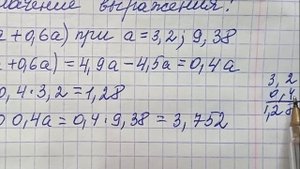 значение выражения:
а+0,6а) при а=3,2; 9,38
а+0,6а)=4,9а-4,5а=0,4а
0,4·3,2=1,28
0,4а=0,4·9,38=3,752
3,2
0,4
1,28